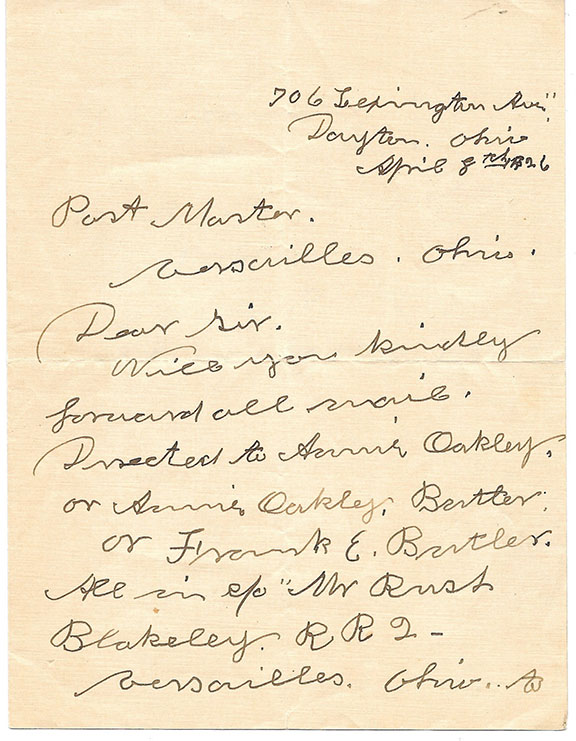 706 Lexington Ave"
Dayton. Ohio
April 8th 1926
Post Master.
Versailles. Ohio.
Dear Sir.
Will you kindly
forward all mail.
Directed to Annie Oakley.
or Annie Oakley. Butler.
or Frank E. Butler.
All in c/o "Mr Rush
Blakeley. R R 2 -
Versailles. Ohio. to